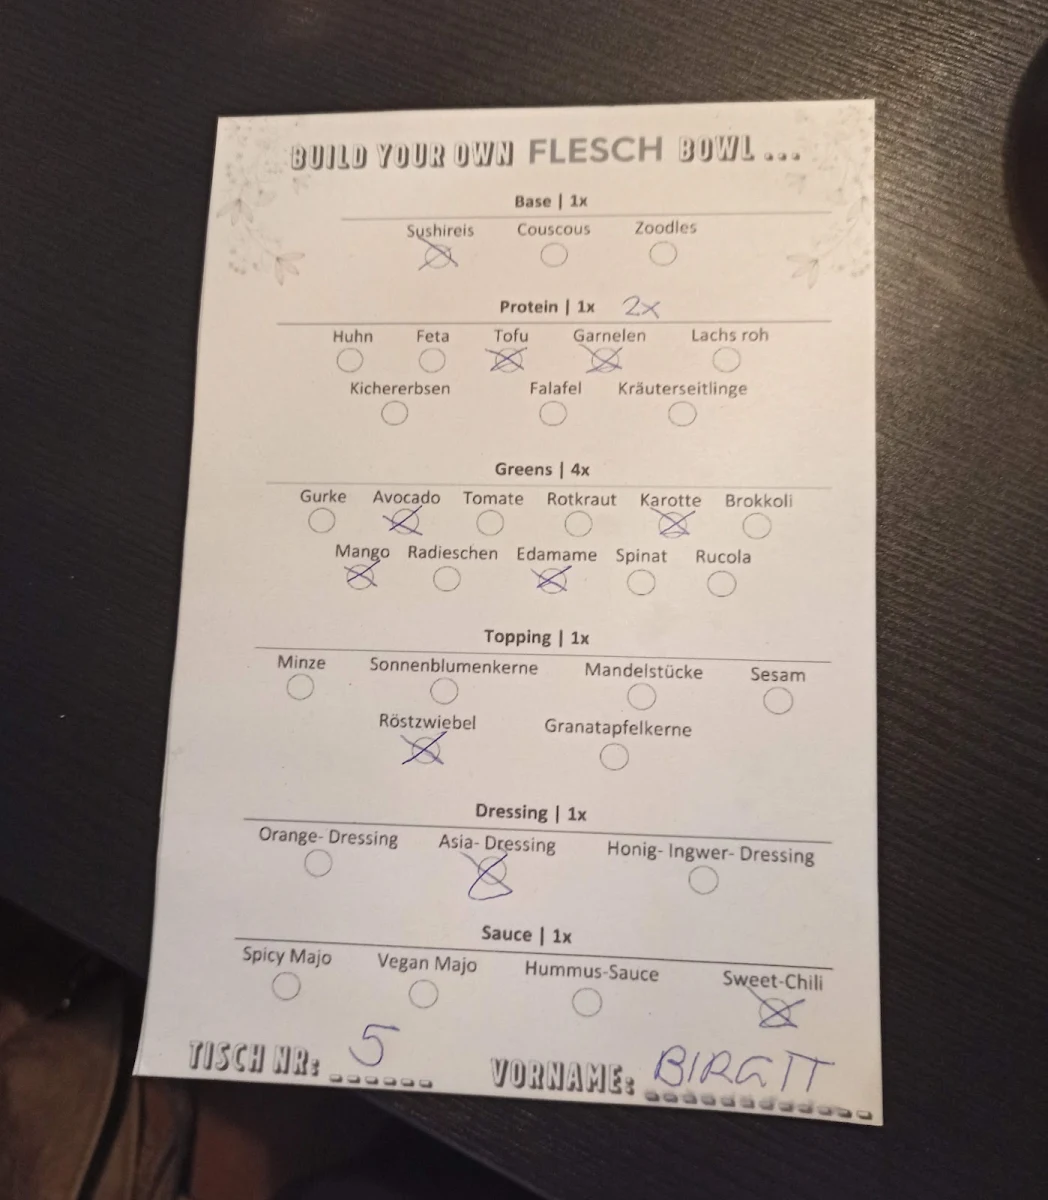 BUILD YOUR OWN FLESCH BOWL ...
Base | 1x
Sushireis Couscous Zoodles
Protein | 1x 2x
Huhn Feta Tofu Garnelen Lachs roh
Kichererbsen Falafel Kräuterseitlinge
Greens | 4x
Gurke Avocado Tomate Rotkraut Karotte Brokkoli
Mango Radieschen Edamame Spinat Rucola
Topping | 1x
Minze Sonnenblumenkerne Mandelstücke Sesam
Röstzwiebel Granatapfelkerne
Dressing | 1x
Orange- Dressing Asia- Dressing Honig- Ingwer- Dressing
Sauce | 1x
Spicy Majo Vegan Majo Hummus-Sauce Sweet-Chili
TISCH NR: 5 VORNAME: BIRGIT